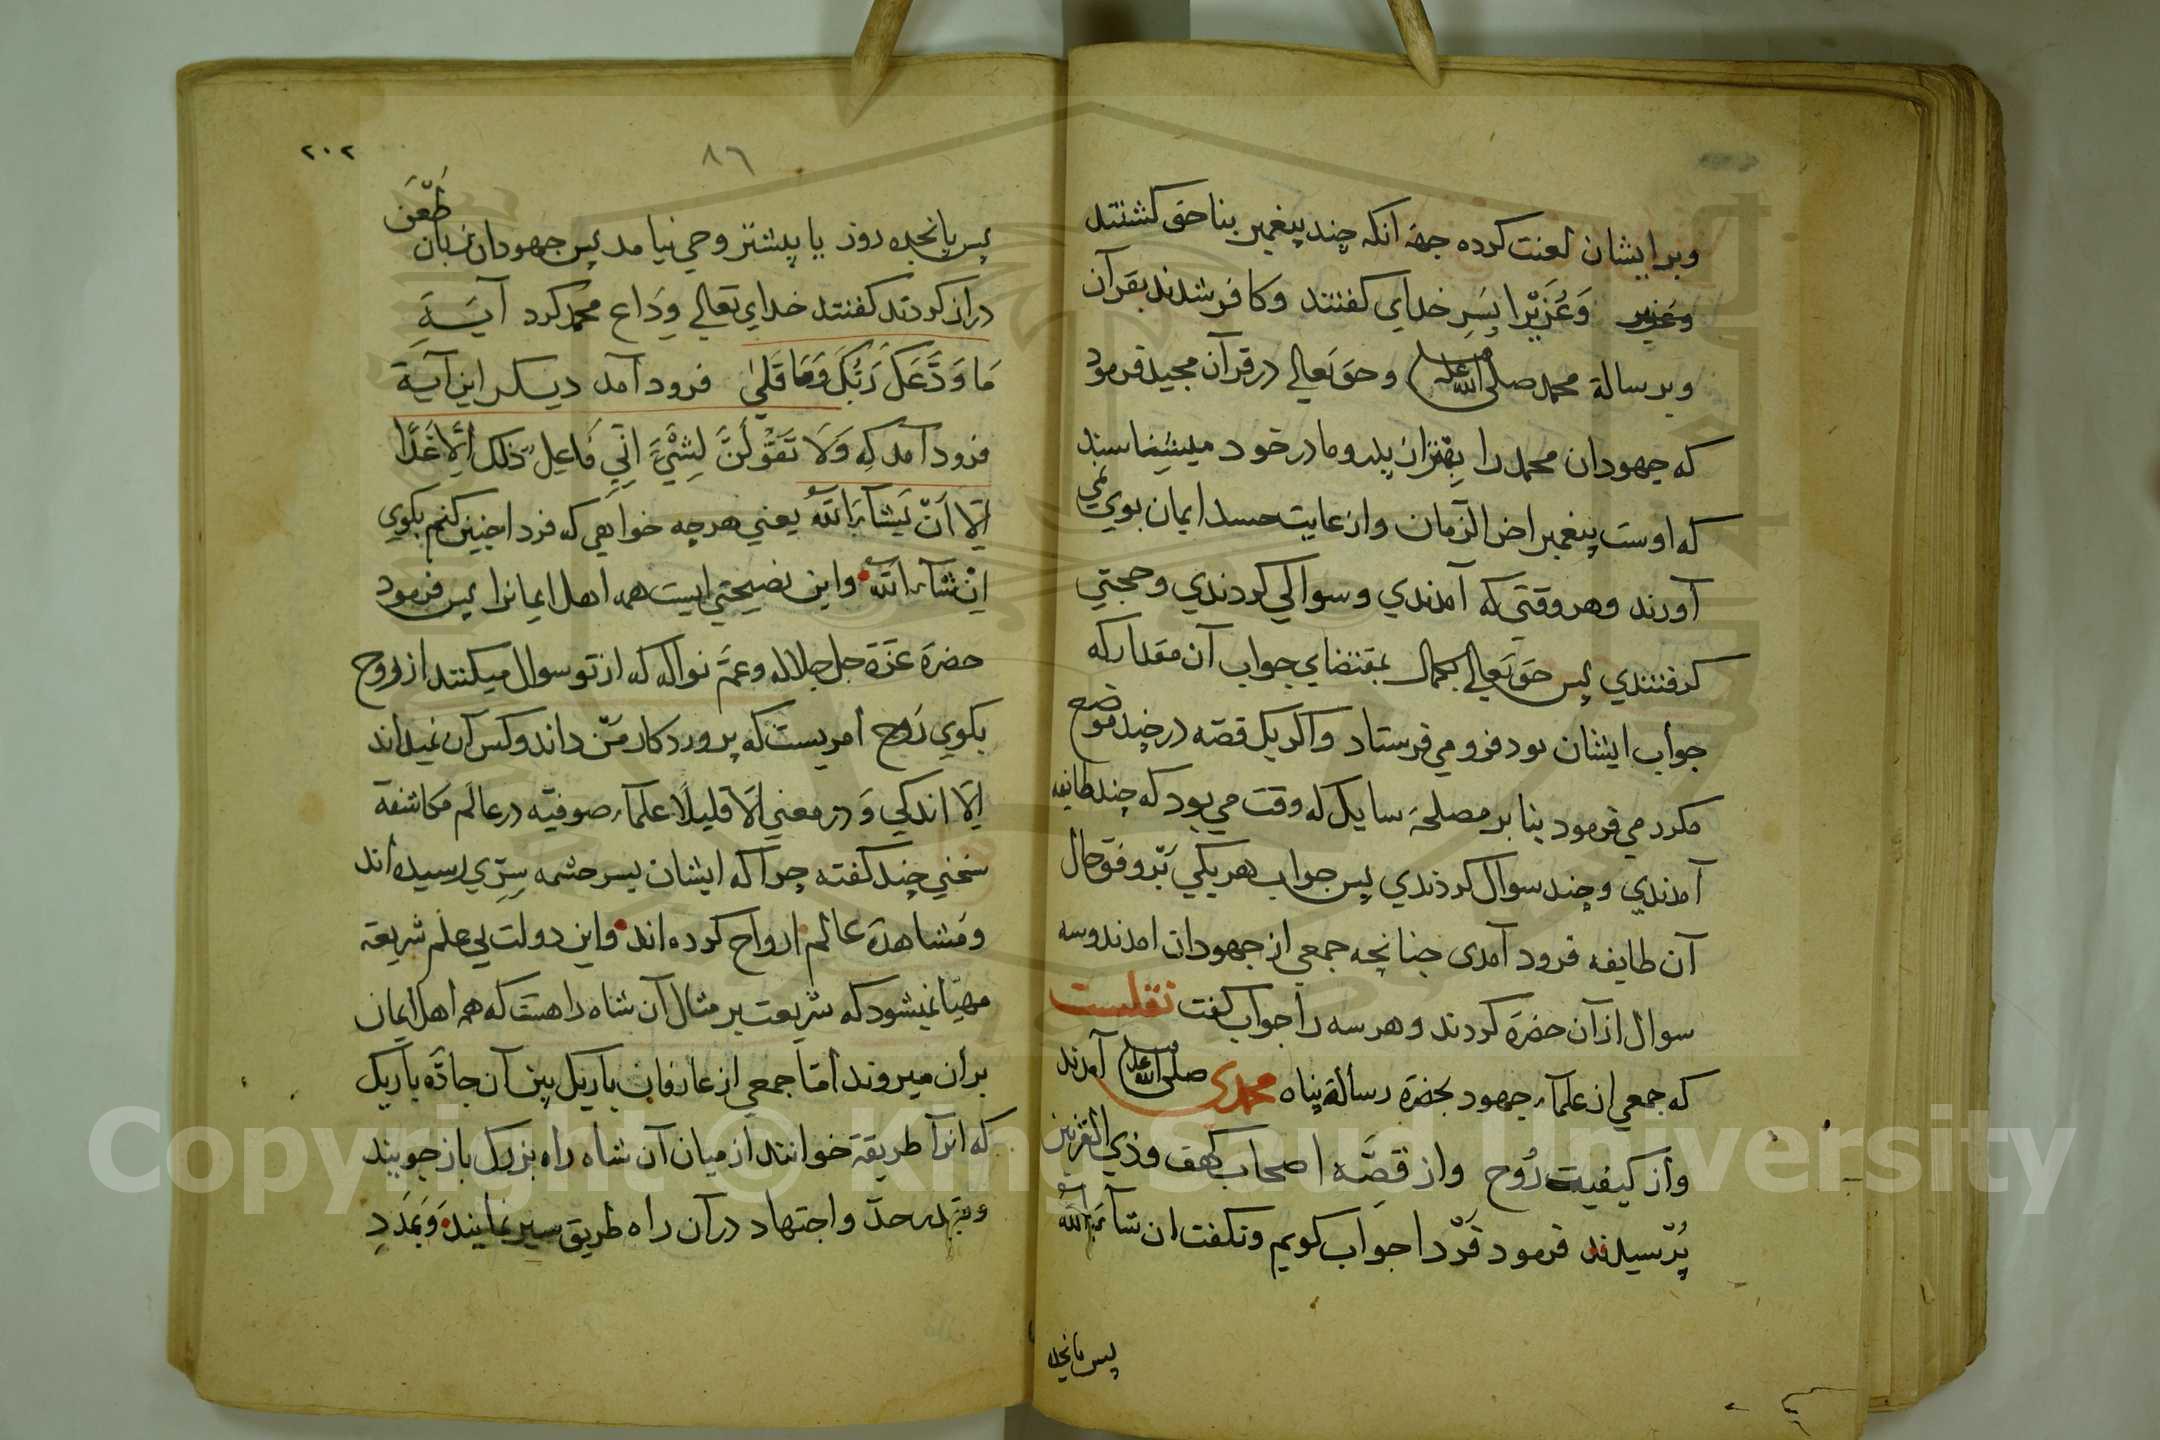 وبرایشان لعنت کرده جهة انکه چند پیغمبر بناحق کشتند
وَعُزَیْرا پسَرِ خدای کفتند وکافر شدند بقرآن
وبرسالة محمد صلی الله علیه وحق تعالی در قرآن مجید فرمود
که جهودان محمد را بهتر از پدر و مادر خود میشناسند
که اوست پیغمبر اخر الزمان واز غایت حسد ایمان بوی نمی
آورند وهر وقتی که آمدندی وسوالی کردندی وحجتی
کرفتندی پس حق تعالی بمقتضای جواب آن مقدار که
جواب ایشان بود فرو می فرستاد واکر یک قصه در چند موضع
مکرر می فرمود بنا بر مصلحة وقت می بود که چند طایفه
آمدندی وچند سوال کردندی پس جواب هر یکی بر وفق حال
آن طایفه فرود آمدی چنانچه جمعی از جهودان امدند وسه
سوال از آن حضرة کردند وهر سه را جواب کفت نقلست
که جمعی از علمآء جهود بحضرة رسالة پناه محمدی صلی الله علیه آمدند
واز کیفیت رُوح واز قصَّه اصحاب کهف وذی القرنین
پُرسیدند فرمود فَرْدا جواب کویم ونکفت ان شآء الله
پس پانجده
٢٠٢
٨٦
پس پانجده روز یا پیشتر وحی نیامد پس جهودان زبان طَعَن
دراز کردند کفتند خدای تعالی وِدَاع محمد کرد آیَـةِ
مَا وَدَّعَكَ رَبُّكَ وَمَا قَلَیٰ فرود آمد دیکر این آیة
فرود آمد که وَلَا تَقُولَنَّ لِشَیْءٍ اِنِّی فَاعِلٌ ذلك غَدًا
اِلَّا اَنْ یَشآءَ اللّٰهُ یعنی هرچه خواهی که فردا چنین کنم بکوی
اِنْ شآء اللّٰه واین نصیحتی ایست همه اهل ایمانرا پس فرمود
حضرة عزة جل جلاله وعمَّ نواله که از تو سوال میکنند از روح
بکوی رَوح امریست که پروردکار من داند وکس آن نمیداند
اِلَّا اندکی وَ در معنی اِلَّا قلیلًا علمآء صوفیّه در عالم مکاشفة
سخنی چند کفته چرا که ایشان بسر چشمه سِرّی رسیده اند
ومُشاهدة عالم ارواح کرده اند واین دولت بی علم شریعة
مهیّا نمیشود که شریعت بر مثال آن شاه راهست که همه اهل ایمان
بران میروند امّا جمعی از عارفان باریک بین آن جادّه باریک
که انرا طریقة خوانند از میان آن شاه راه بزرك باز جویند
وبقدر جدّ واجتهاد در آن راه طریق سیر نمایند وَبمَدَدِ
Copyright © King Saud University